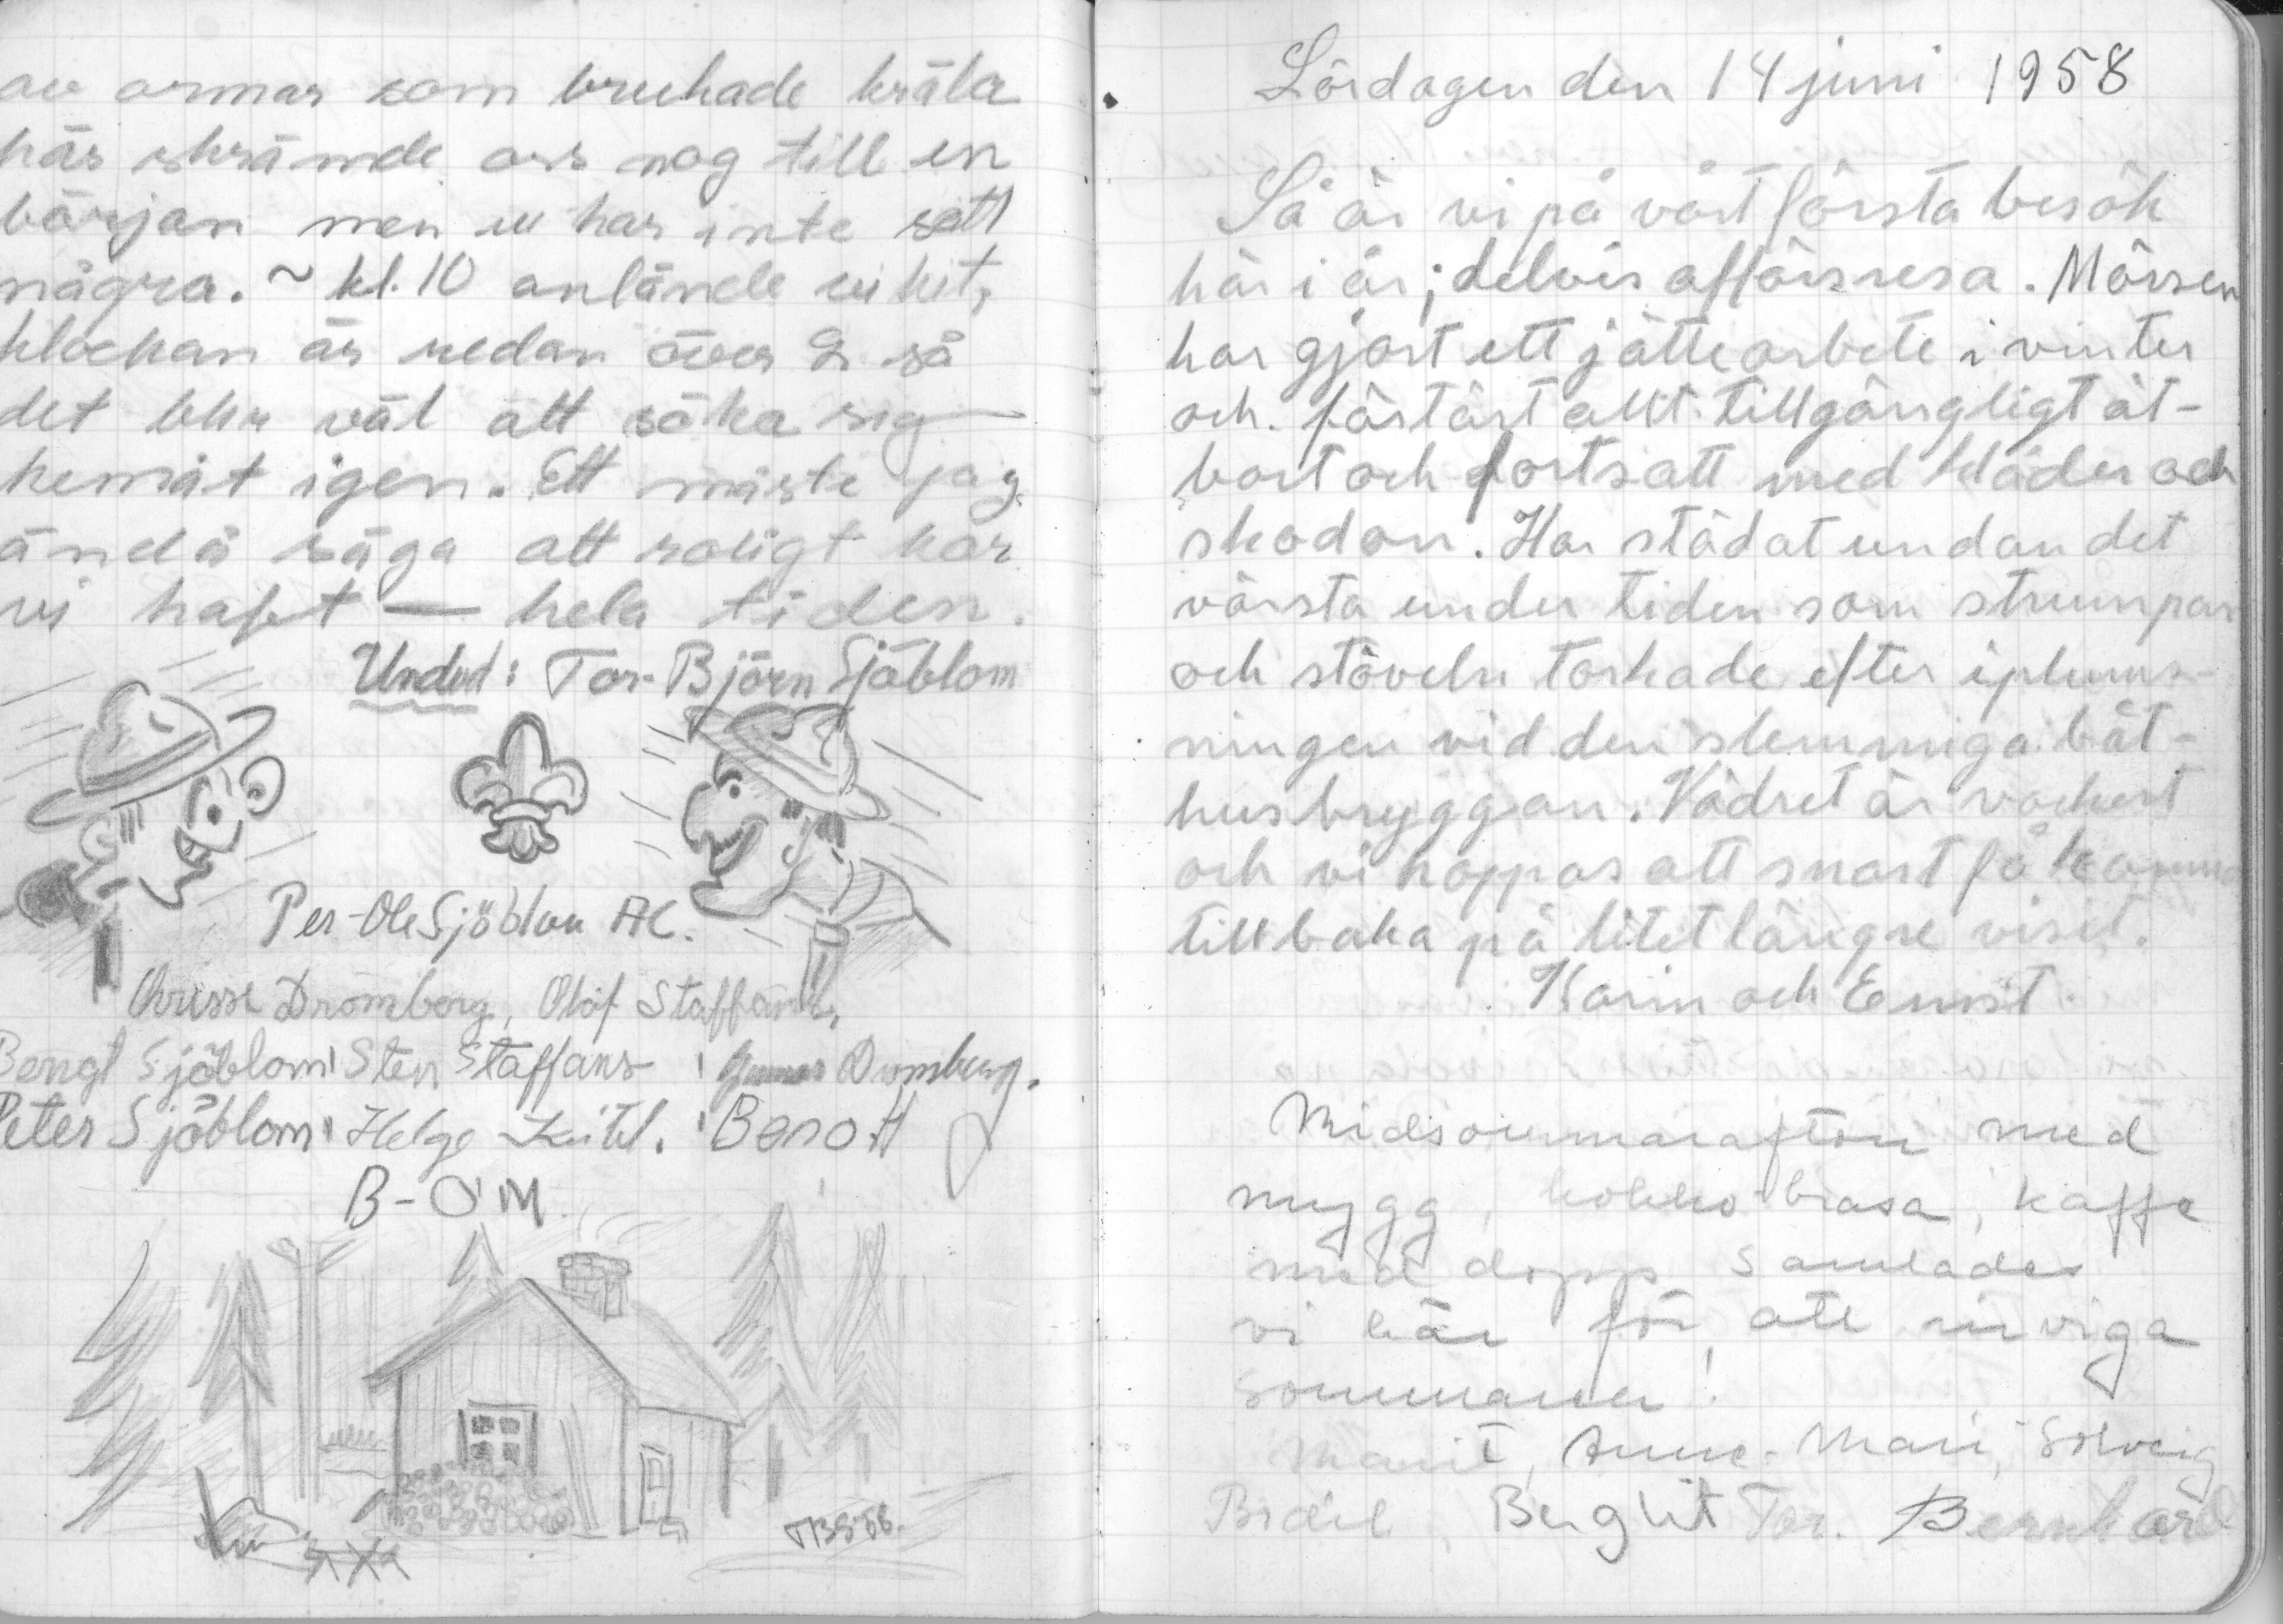 av ormar som brukade kräla
här skrämde oss nog till en
början men vi har inte sett
några. ~ kl. 10 anlände vi hit,
klockan är redan över 2 så
det blir väl att söka sig
hemåt igen. Ett måste jag
ändå säga att roligt har
vi haft — hela tiden.
Undert: Tor-Björn Sjöblom
Per-Ole Sjöblom AC.
Chrisse Drömberg, Olof Staffans,
Bengt Sjöblom, Sten Staffans, Gunnar Drömberg.
Peter Sjöblom, Helge
B-OM
TBS-58.
Lördagen den 14 juni 1958
Så är vi på vårt första besök
här i år; delvis affärsresa. Mörsen
har gjort ett jättearbete i vinter
och förtärt allt tillgängligt ät-
bart och fortsatt med kläder och
skodon. Har städat undan det
värsta under tiden som strumpor
och stöveln torkade efter iplums-
ningen vid den slemmiga båt-
husbryggan. Vädret är vackert
och vi hoppas att snart få komma
tillbaka på litet längre visit.
Karin och Ernst.
Midsommarafton med
mygg, kokko-brasa, kaffe
med dopp samlades
vi här för att inviga
sommaren!
Marit, Anne-Mari, Solveig
Bodil, Berglit Tor. Bernhard